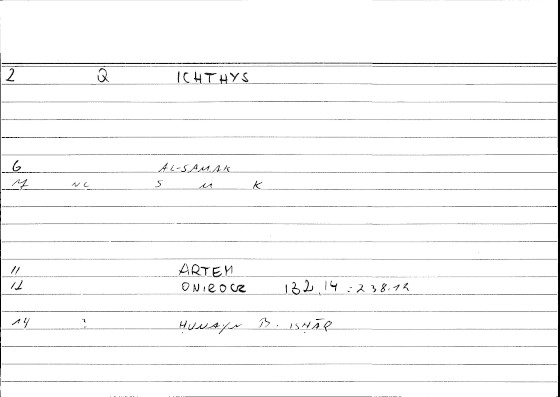 2 Q ICHTHYS
6 AL-SAMAK
NC S M K
11 ARTEM
12 ONIROCR 132,14 : 238.12
14 : HUNAYN B. ISHĀQ